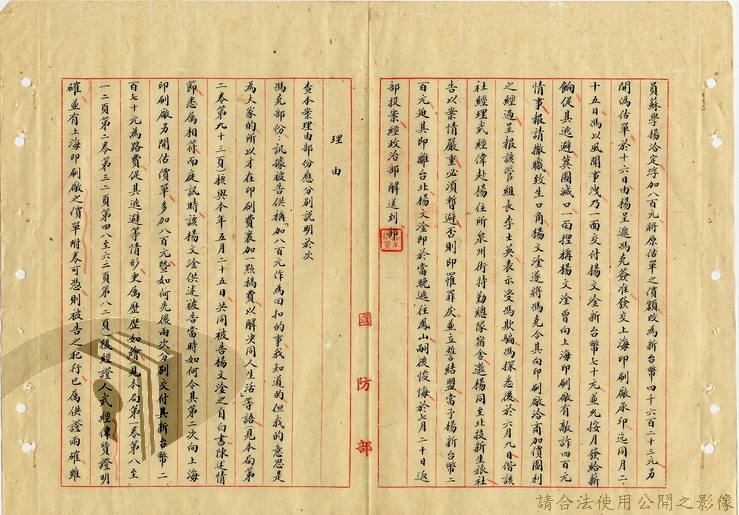 員蘇學揚洽定浮加八百元將原估單之價額改為新台幣四千六百二十三元另
開偽估單於十六日由揚呈遞馮克簽准發交上海印刷廠承印迄同月二
十五日馮以風聞事洩乃一面交付揚文淦新台幣七十元並允按月發給薪
餉促其逃避冀圖滅口一面捏稱揚文淦曾向上海印刷廠有敲詐四百元
情事報請撤職致生口角揚文淦遂將馮克令其向印刷廠洽商加價圖利
之經過呈報該管組長李士英表示受馮欺騙馮探悉後於六月九日偕該
社經理式經偉赴揚住所泉州街特勤總隊宿舍邀揚同至北投新生旅社
告以案情嚴重必須暫避否則印罹罪戾並立誓結盟當予揚新台幣二
百元迫其即離台北揚文淦即於當晚逃往鳳山嗣後悛悔於七月二十日返
部投案經政治部解送到部
理由
查本案理由部份應分別說明於次
馮克部份：訊據被告供稱「加八百元作為回扣的事我知道的但我的意思是
為大家的所以才在印刷費裏加一點稿費以解決同人生活」等語（見本局第
二卷第九、十三頁）核與本年五月二十五日共同被告揚文淦之自白書陳述情
節悉屬相符而庭訊時該揚文淦供述被告當時如何令其第二次向上海
印刷廠另開估價單多加八百元暨如何先後兩次分別交付其新台幣二
百七十元為路費促其逃避等情形更屬歷歷如繪見本局第一卷第八至
一二頁第二卷第三二頁第四八至六二頁第八二頁後經證人式經偉質證明
確並有上海印刷廠之價單附卷可憑則被告之犯行已屬供證兩確雖
國防部
請合法使用公開之影像